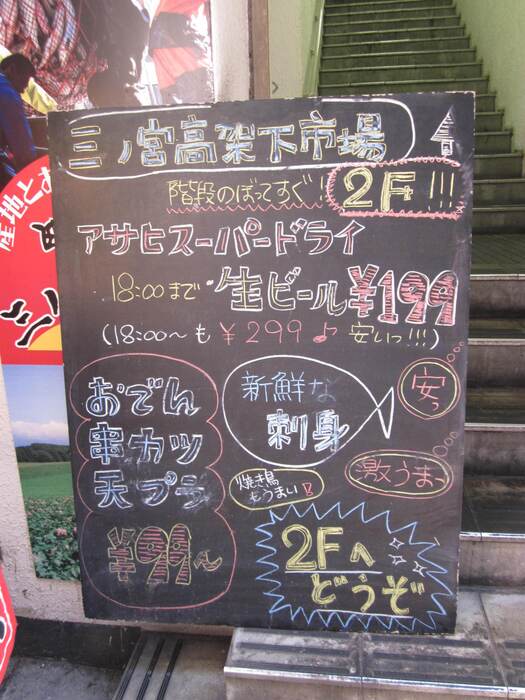 三ノ宮高架下市場
階段のぼってすぐ!
2F!!!
アサヒスーパードライ
18:00まで・生ビール¥199
(18:00〜も¥299♪安いっ!!!)
おでん
串カツ
天プラ
¥99〜
新鮮な
刺身
安っ
激うまっ
焼き鳥
もうまい!!
2Fへ
どうぞ
産地とお